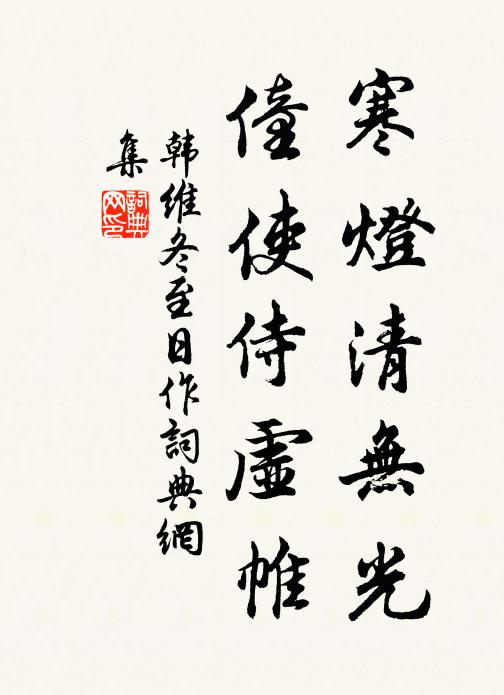 寒燈清無光
僮使侍虛帷
韩维冬至日作詞典網
集
詞典網印